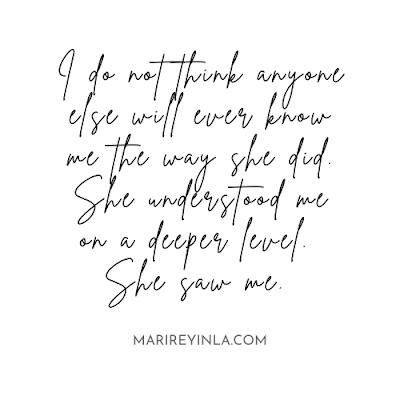 I do not think anyone
else will ever know
me the way she did.
She understood me
on a deeper level.
She saw me.
MARIREYINLA.COM